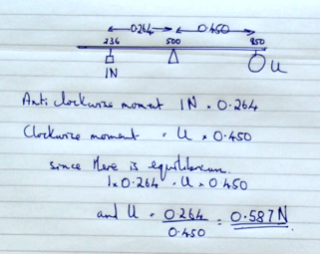 0.264 0.450
236 500 950
1N U
Anti clockwise moment 1N × 0.264
Clockwise moment = U × 0.450
since there is equilibrium.
1 × 0.264 = U × 0.450
and U = 0.264 = 0.587N.
0.450